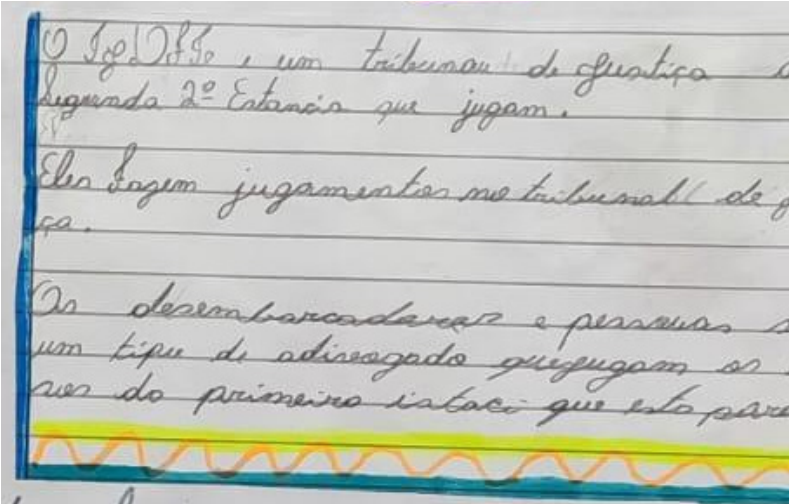 um tribunau de Justiça
Segunda 2º Estancia que jugam.
Eles fazem jugamentos no tribunal de
ça.
Os desembarcadares e pessoas
um tipu de adivogado que jugam os
do primeiro istaci que esto